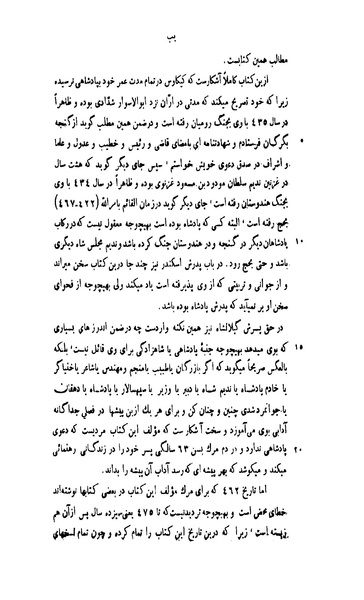 یب
مطالب همین کتابست.
ازین کتاب کاملاً آشکارست که کیکاوس درتمام مدت عمر خود بپادشاهی نرسیده
زیرا که خود تصریح میکند که مدتی در اران نزد ابوالاسوار شدّادی بوده و ظاهراً
در سال ٤٣٥ با وی بجنگ رومیان رفته است و درضمن همین مطلب گوید از گنجه
٥ بگرگان فرستادم و شهادتنامه ای بامضای قاضی و رئیس و خطیب و عدول و علما
و اشراف در صدق دعوی خویش خواستم، سپس جای دیگر گوید که هشت سال
در غزنین ندیم سلطان مودود بن مسعود غزنوی بوده و ظاهراً در سال ٤٣٤ با وی
بجنگ هندوستان رفته است، جای دیگر گوید درزمان القائم بامرالله (٤٢٢-٤٦٧)
بحج رفته است، البته کسی که پادشاه بوده است بهیچوجه معقول نیست که در رکاب
١٠ پادشاهان دیگر در گنجه و در هندوستان جنگ کرده باشد و ندیم مجلس شاه دیگری
باشد و حتی بحج رود. در باب پدرش اسکندر نیز چند جا درین کتاب سخن میراند
و از جوانی و تربیتی که از وی پذیرفته است یاد میکند ولی بهیچوجه از فحوای
سخن او بر نمیآید که پدرش پادشاه بوده باشد.
در حق پسرش گیلانشاه نیز همین نکته واردست چه درضمن اندرز های بسیاری
١٥ که بوی میدهد بهیچوجه جنبهٔ پادشاهی یا شاهزادگی برای وی قائل نیست، بلکه
بالعکس صریحاً میگوید که اگر بازرگان یاطبیب یامنجم ومهندس یاشاعر یاخنیاگر
یا خادم پادشاه یا ندیم شاه یا دبیر یا وزیر یا سپهسالار یا پادشاه یا دهقان
یا جوانمرد شدی چنین و چنان کن و برای هر یك ازین پیشها در فصلی جداگانه
آدابی بوی می‌آموزد و سخت آشکارست که مؤلف این کتاب مردیست که دعوی
٢٠ پادشاهی ندارد و در دم مرك بسن ٦٣ سالگی پسر خود را در زندگانی رهنمائی
میکند و میکوشد که بهر پیشه ای که رسد آداب آن پیشه را بداند.
اما تاریخ ٤٦٢ که برای مرك مؤلف این کتاب در بعضی کتابها نوشته‌اند
خطای محض است و بهیچوجه تردید نیست که تا ٤٧٥ یعنی سیزده سال پس ازآن هم
زیسته است، زیرا که درین تاریخ این کتاب را تمام کرده و چون تمام نسخهای